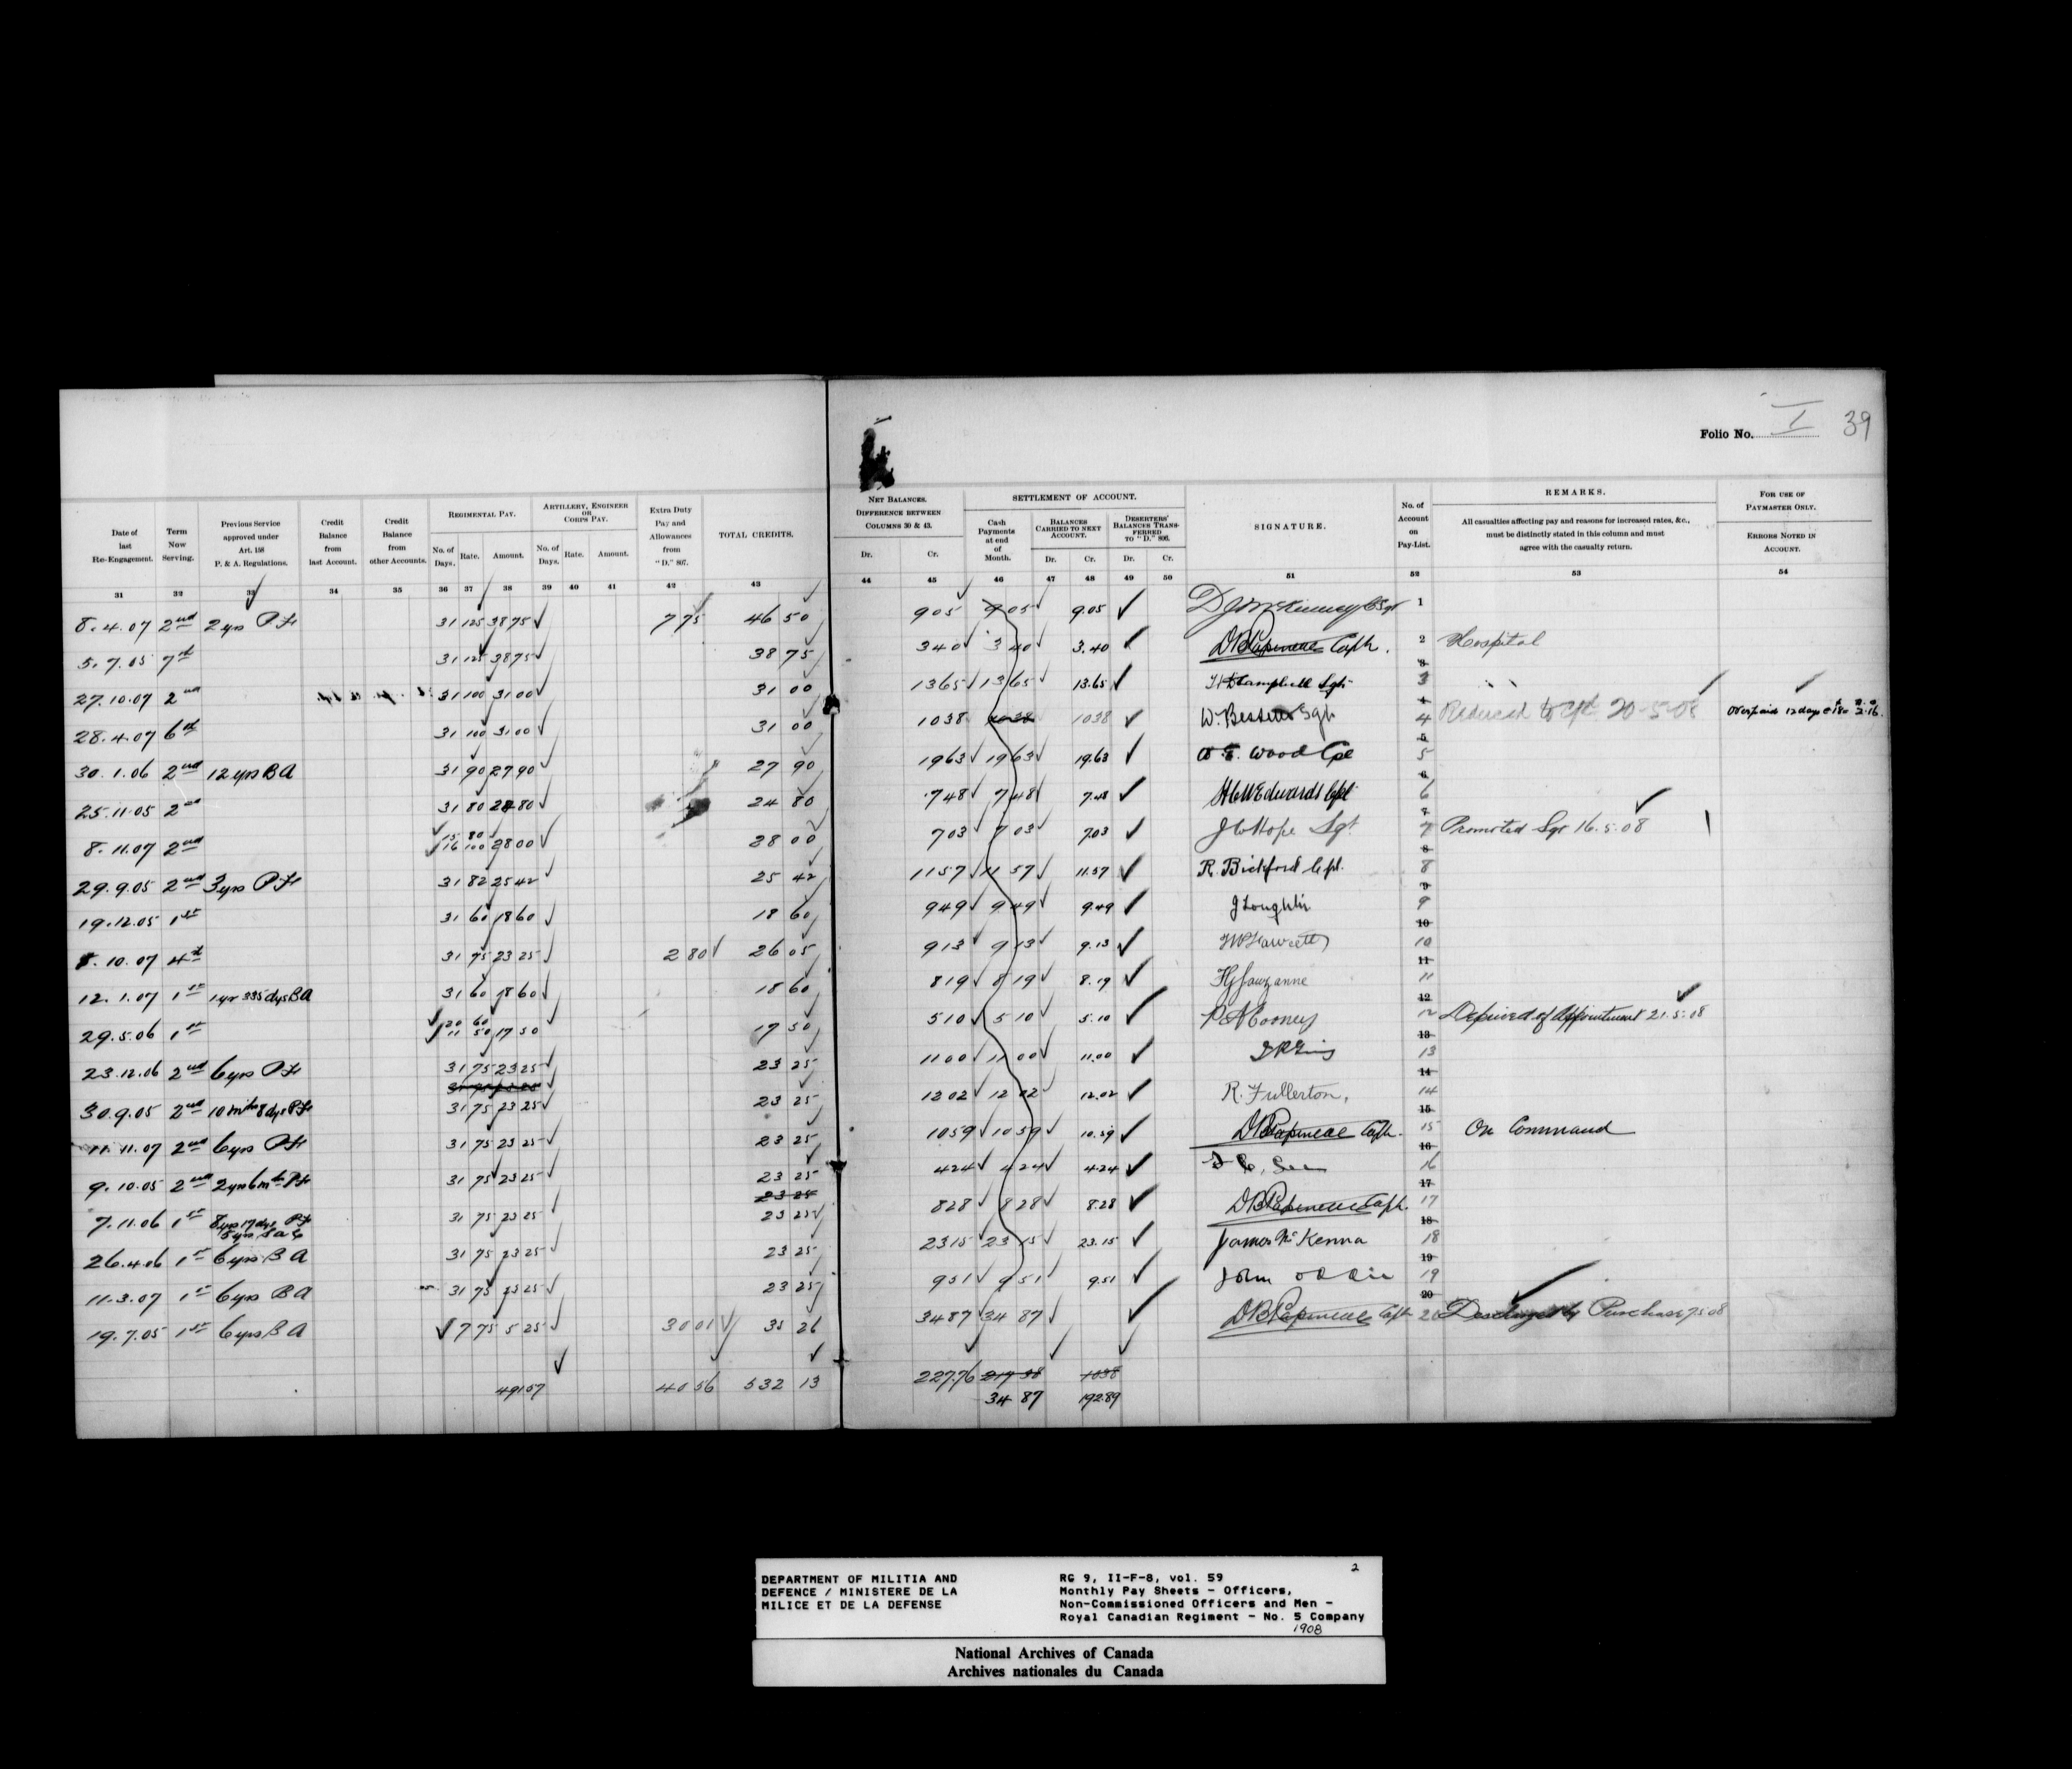 Folio No. I 39
Date of last Re-Engagement.
Term Now Serving.
Previous Service approved under Art. 158 P. & A. Regulations.
Credit Balance from last Account.
Credit Balance from other Accounts.
REGIMENTAL PAY.
No. of Days. Rate. Amount.
ARTILLERY, ENGINEER OR CORPS PAY.
No. of Days. Rate. Amount.
Extra Duty Pay and Allowances from "D." 807.
TOTAL CREDITS.
NET BALANCES. DIFFERENCE BETWEEN COLUMNS 30 & 43.
Dr. Cr.
SETTLEMENT OF ACCOUNT.
Cash Payments at end of Month.
BALANCES CARRIED TO NEXT ACCOUNT.
Dr. Cr.
DESERTERS' BALANCES TRANSFERRED TO "D." 806.
Dr. Cr.
SIGNATURE.
No. of Account on Pay-List.
REMARKS.
All casualties affecting pay and reasons for increased rates, &c., must be distinctly stated in this column and must agree with the casualty return.
FOR USE OF PAYMASTER ONLY.
ERRORS NOTED IN ACCOUNT.
31 32 33 34 35 36 37 38 39 40 41 42 43 44 45 46 47 48 49 50 51 52 53 54
8.4.07 2nd 2 yrs P.F. 31 125 38 75 7 75 46 50 9 05 9 05 9.05 1
5.7.05 7th 31 125 38 75 38 75 3 40 3 40 3.40 D B Papineau Capt. 2 Hospital
27.10.07 2nd 31 100 31 00 31 00 13 65 13 65 13.65 Campbell Sgt 3
28.4.07 6th 31 100 31 00 31 00 10 38 10 38 10 38 W. Sgt 4 Reduced to 20-5-08 Overpaid 12 days 2.16.
30.1.06 2nd 12 yrs B A 31 90 27 90 27 90 19 63 19 63 19.63 Wood Cpl 5
25.11.05 2nd 31 80 24 80 24 80 7 48 7 48 7.48 Edwards Cpl 6
8.11.07 2nd 15 80 16 100 28 00 28 00 7 03 7 03 7.03 Hope Sgt 7 Promoted Sgt 16.5.08
29.9.05 2nd 3 yrs P.F. 31 82 25 42 25 42 11 57 11 57 11.57 R. Bickford Cpl. 8
19.12.05 1st 31 60 18 60 18 60 9 49 9 49 9.49 J Loughlin 9
8.10.07 4th 31 75 23 25 2 80 26 05 9 13 9 13 9.13 10
12.1.07 1st 1 yr 335 dys B A 31 60 18 60 18 60 8 19 8 19 8.19 11
29.5.06 1st 20 60 11 50 17 50 17 50 5 10 5 10 5.10 Mooney 12 Deprived of Appointment 21.5.08
23.12.06 2nd 6 yrs P.F. 31 75 23 25 23 25 11 00 11 00 11.00 13
30.9.05 2nd 10 mths 8 dys P.F. 31 75 23 25 23 25 12 02 12 02 12.02 R. Fullerton. 14
11.11.07 2nd 6 yrs P.F. 31 75 23 25 23 25 10 59 10 59 10.59 D B Papineau Capt. 15 On Command
9.10.05 2nd 2 yrs 6 mths P.F. 31 75 23 25 23 25 4 24 4 24 4.24 16
7.11.06 1st 8 yrs 17 dys P.F. 31 75 23 25 23 25 8 28 8 28 8.28 D B Papineau Capt. 17
26.4.06 1st 6 yrs B A 31 75 23 25 23 25 23 15 23 15 23.15 James McKenna 18
11.3.07 1st 6 yrs B A 31 75 23 25 23 25 9 51 9 51 9.51 John 19
19.7.05 1st 6 yrs B A 7 75 5 25 30 01 35 26 34 87 34 87 D B Papineau Capt 20 Discharged by Purchase 7.5.08
491 57 40 56 532 13 227.76 217 38 10 38
34 87 192.89
DEPARTMENT OF MILITIA AND
DEFENCE / MINISTERE DE LA
MILICE ET DE LA DEFENSE
RG 9, II-F-8, vol. 59 2
Monthly Pay Sheets - Officers,
Non-Commissioned Officers and Men -
Royal Canadian Regiment - No. 5 Company
1908
National Archives of Canada
Archives nationales du Canada